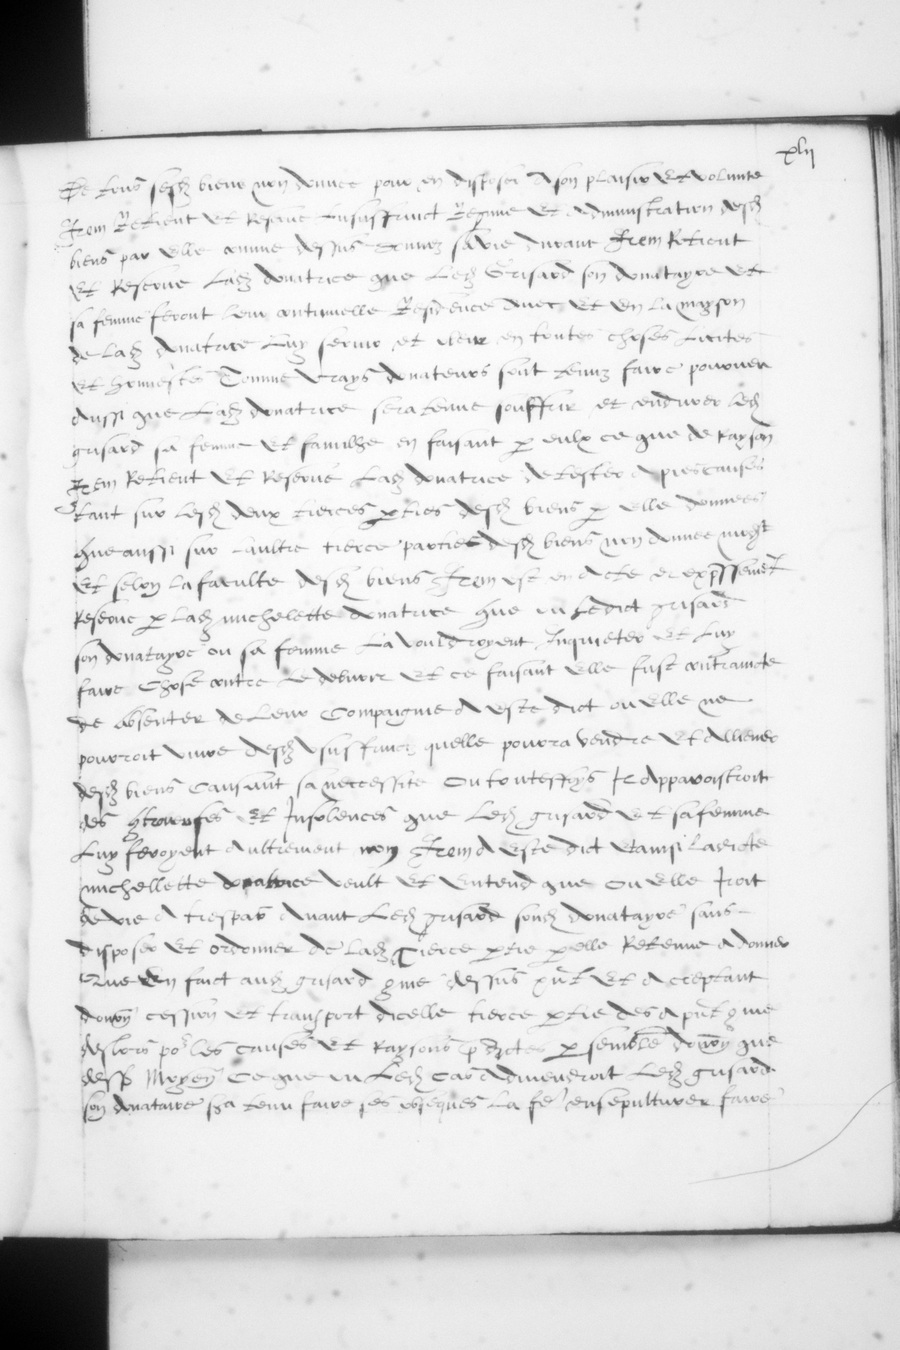 xlii
De tous sesd biens non donnee pour en disposer A son plaisir Et volunte
Item Retient Et Reserve Lusuffruict Regime Et Administration desd
biens par Elle comme dessus donnez sa vie durant Item Retient
Et Reserve Lad donatrice que Led Grisard son donatayre Et
sa femme feront leur continuelle Residence avec Et en La mayson
de Lad donatrice Luy servir et obeir en toutes choses Licites
Et honnestes Comme vrays donateurs sont tenuz faire pourveu
Aussi que Lad donatrice sera tenue souffrir et endurer led
grisard sa femme Et familhe en faisant p eulx ce que de Rayson
Item Retient Et Reserve Lad donatrice de tester A pies causes
tant sur lesd deux tierces pties desd biens p elle donnees
que aussi sur laultre tierce partie desd biens non donnee
Et selon La faculte desd biens Item est en acte et expssement
Reserve p Lad michelette donatrice que ou Ledict grisard
son donatayre ou sa femme La vouldroyent Inquieter Et Luy
faire Chose contre Le debvoir Et ce faisant Elle fust contraincte
de Absenter de Leur Compaignie A este dict ou elle ne
pourroit vivre desd usuffruict quelle pourra vendre Et Alliener
desd biens Causant sa neccessite Ou toutesfoys Il Apparoistroit
des Et Insolences que Led grisard Et sa femme
Luy feroyent Aultrement non Item A este dict Et ainsi Ladicte
michellette donatrice veult Et Entend que Ou elle Iroit
de vie A trespas Avant Led grisard sond donatayre sans
disposer Et ordonner de Lad tierce ptie p elle Retenue A donner
Aud grisard dessus Et Acceptant
donon cession Et transport dicelle tierce ptie des A pnt
deslors po les causes Et Raysons p dictes p semble donon que
dessus Moyen Ce que ou Led Cas Adviendroit Led grisard
son donataire sera tenu faire ses obseques La fe ensepulturer faire